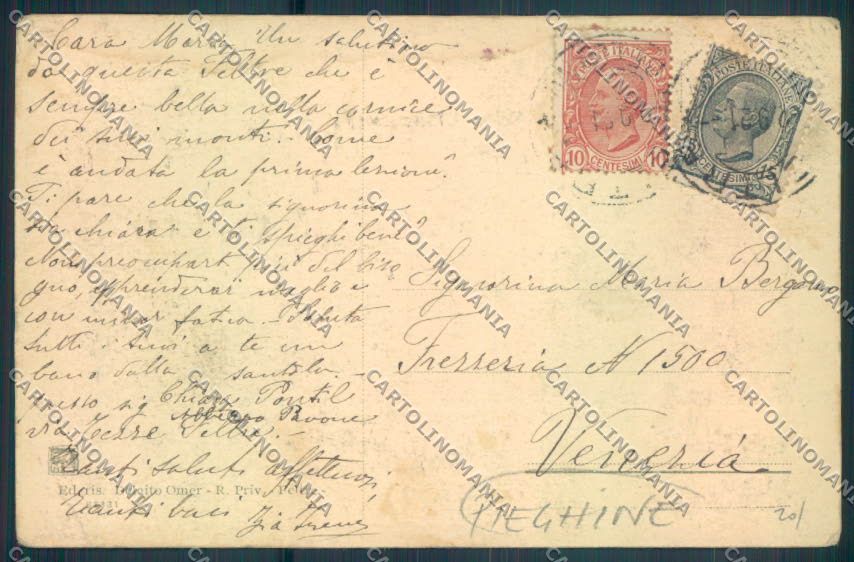 Cara Maria Un salutino
da questa Feltre che è
sempre bella nella cornice
dei suoi monti. Come
è andata la prima lezione?
Ti pare che la signorina
sia chiara e ti spieghi bene?
Non preoccuparti più del biso
gno, apprenderai meglio e
con minor fatica. - Saluta
tutti i tuoi a te un
bacio dalla santola.
presso sig Chiara
Albergo Pavone
via Tezze Feltre. -
Tanti saluti affettuosi,
tanti baci Zia Irene
Ed. ris. Omer - R. Priv. Feltre
POSTE ITALIANE
10 CENTESIMI 10
POSTE ITALIANE
CENTESIMI 15
Signorina Maria Bergamo
Frezzeria N 1500
Venezia
PIEGHINE
20/
CARTOLINOMANIA